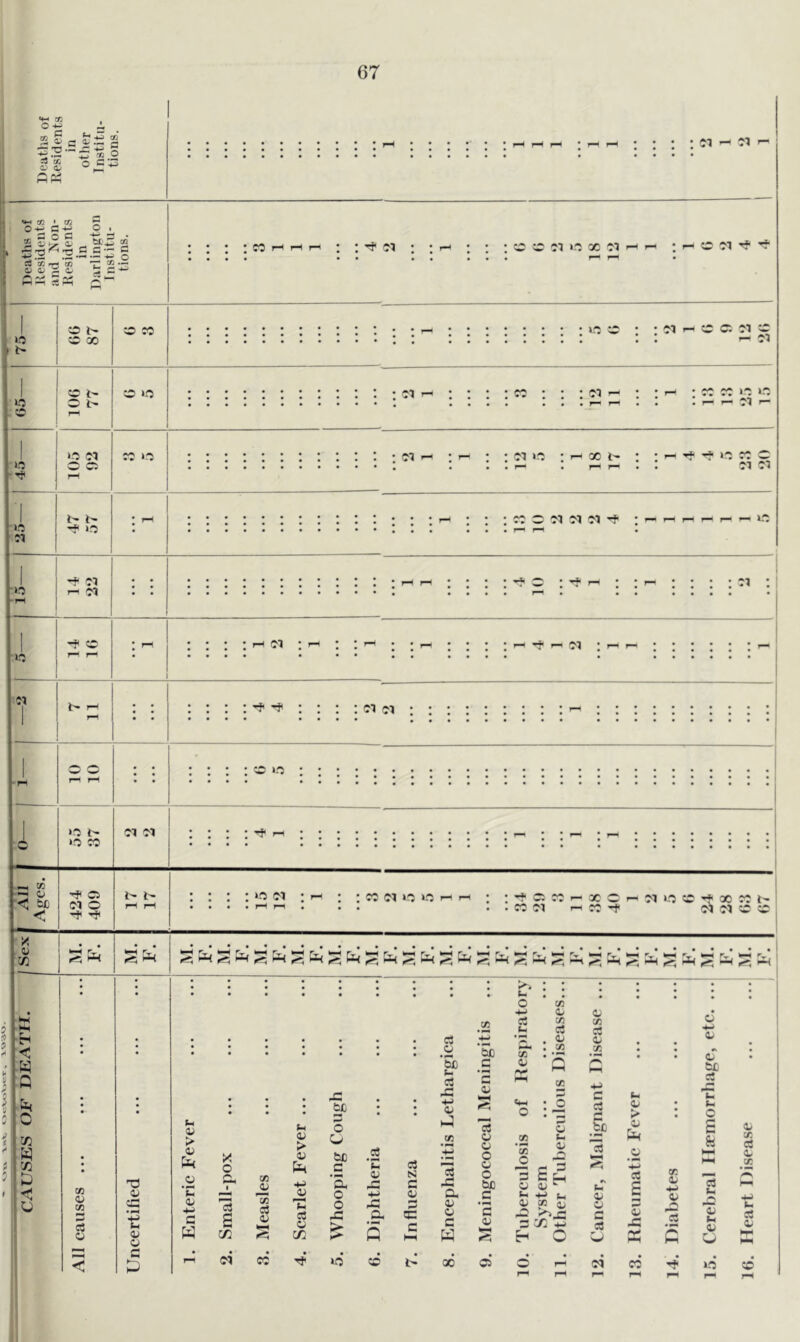 67
CAUSES OF DEATH. | Sex | All Ages. | 0— | 1— | 2— | 5— | 15— | 25— | 45— | 65— | 75— | Deaths of Residents and Non-Residents in Darlington Institutions. | Deaths of Residents in other Institutions.
All causes ... M. 424 55 10 7 14 14 47 105 106 66
F. 409 37 10 11 16 22 57 92 77 87
Uncertified ... M. 17 2 ... ... ... ... ... 3 6 6
F. 17 2 ... ... 1 ... 1 5 5 3
1. Enteric Fever ... M. ...
F. ...
2. Small-pox ... M. ...
F. ...
3. Measles ... M. 15 4 6 4 1 ... ... ... ... ... 3 ...
F. 12 1 5 4 2 ... ... ... ... ... 1 ...
4. Scarlet Fever ... M. ... ... ... ... ... ... ... ... ... ... 1 ...
F. 1 ... ... ... 1 ... ... ... ... ... 1 ...
5. Whooping Cough ... M. ...
F. ...
6. Diphtheria ... M. 3 ... ... 2 1 ... ... ... ... ... 4 ...
F. 2 ... ... 2 ... ... ... ... ... ... 2 1
7. Influenza ... M. 5 ... ... ... ... 1 ... 2 2 ... ... ...
F. 5 ... ... ... 1 1 ... 1 1 1 ... ...
8. Encephalitis Lethargica M. 1 ... ... ... ... ... 1 ... ... ... 1 ...
F. 1 ... ... ... ... ... ... 1 ... ... ... ...
9. Meningococcal Meningitis ... M. ...
F. ...
10. Tuberculosis of Respiratory System ... M. 34 1 ... ... 1 4 13 12 3 ... 6 1
F. 29 ... ... ... 4 10 10 5 ... ... 6 1
11. Other Tuberculous Diseases... M. 3 ... ... ... 1 ... 2 ... ... ... 2 1
F. 11 1 ... 1 2 4 2 1 ... ... 5 ...
12. Cancer, Malignant Disease ... M. 38 ... ... ... ... 1 2 18 12 5 18 1
F. 40 1 ... ... 1 ... 4 17 11 6 12 1
13. Rheumatic Fever ... M. 1 ... ... ... 1 ... ... ... ... ... 1 ...
F. 2 ... ... ... ... 1 1 ... ... ... 1 ...
14. Diabetes ... M. 5 ... ... ... ... ... 1 1 1 2 ... ...
F. 6 ... ... ... ... ... 1 4 ... 1 1 ...
15. Cerebral Hæmorrhage, etc. ... M. 24 ... ... ... ... ... 1 4 13 6 6 2
F. 28 ... ... ... ... ... 1 5 13 9 2 1
16. Heart Disease ... M. 63 ... ... ... ... 2 1 23 25 12 4 2
F. 67 ... ... ... 1 ... 5 20 15 26 4 1